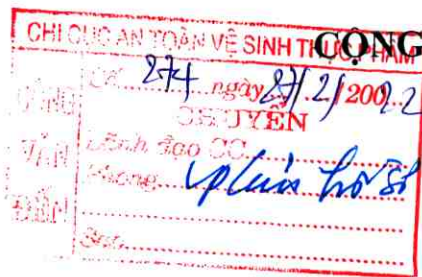 CHI CỤC AN TOÀN VỆ SINH THỰC PHẨM
CỘNG
CÔNG VĂN ĐẾN
Số 274 ngày 27/2/2002
CHUYỂN
Lãnh đạo CC
Phòng